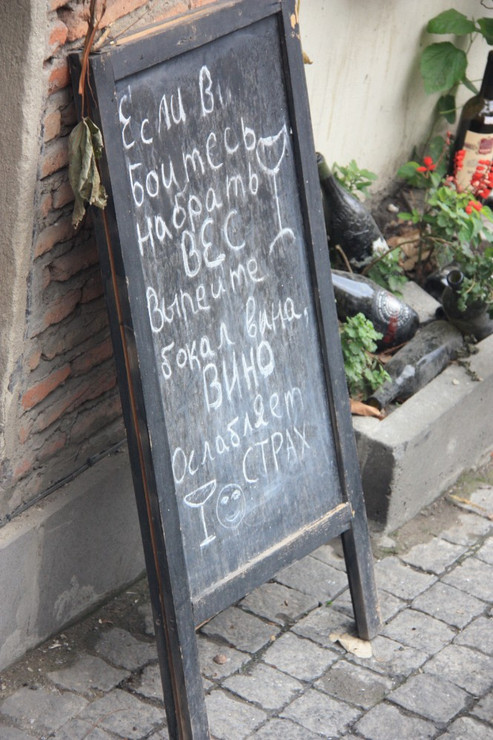 Если Вы
боитесь
набрать
ВЕС
Выпейте
бокал вина,
ВИНО
Ослабляет
СТРАХ